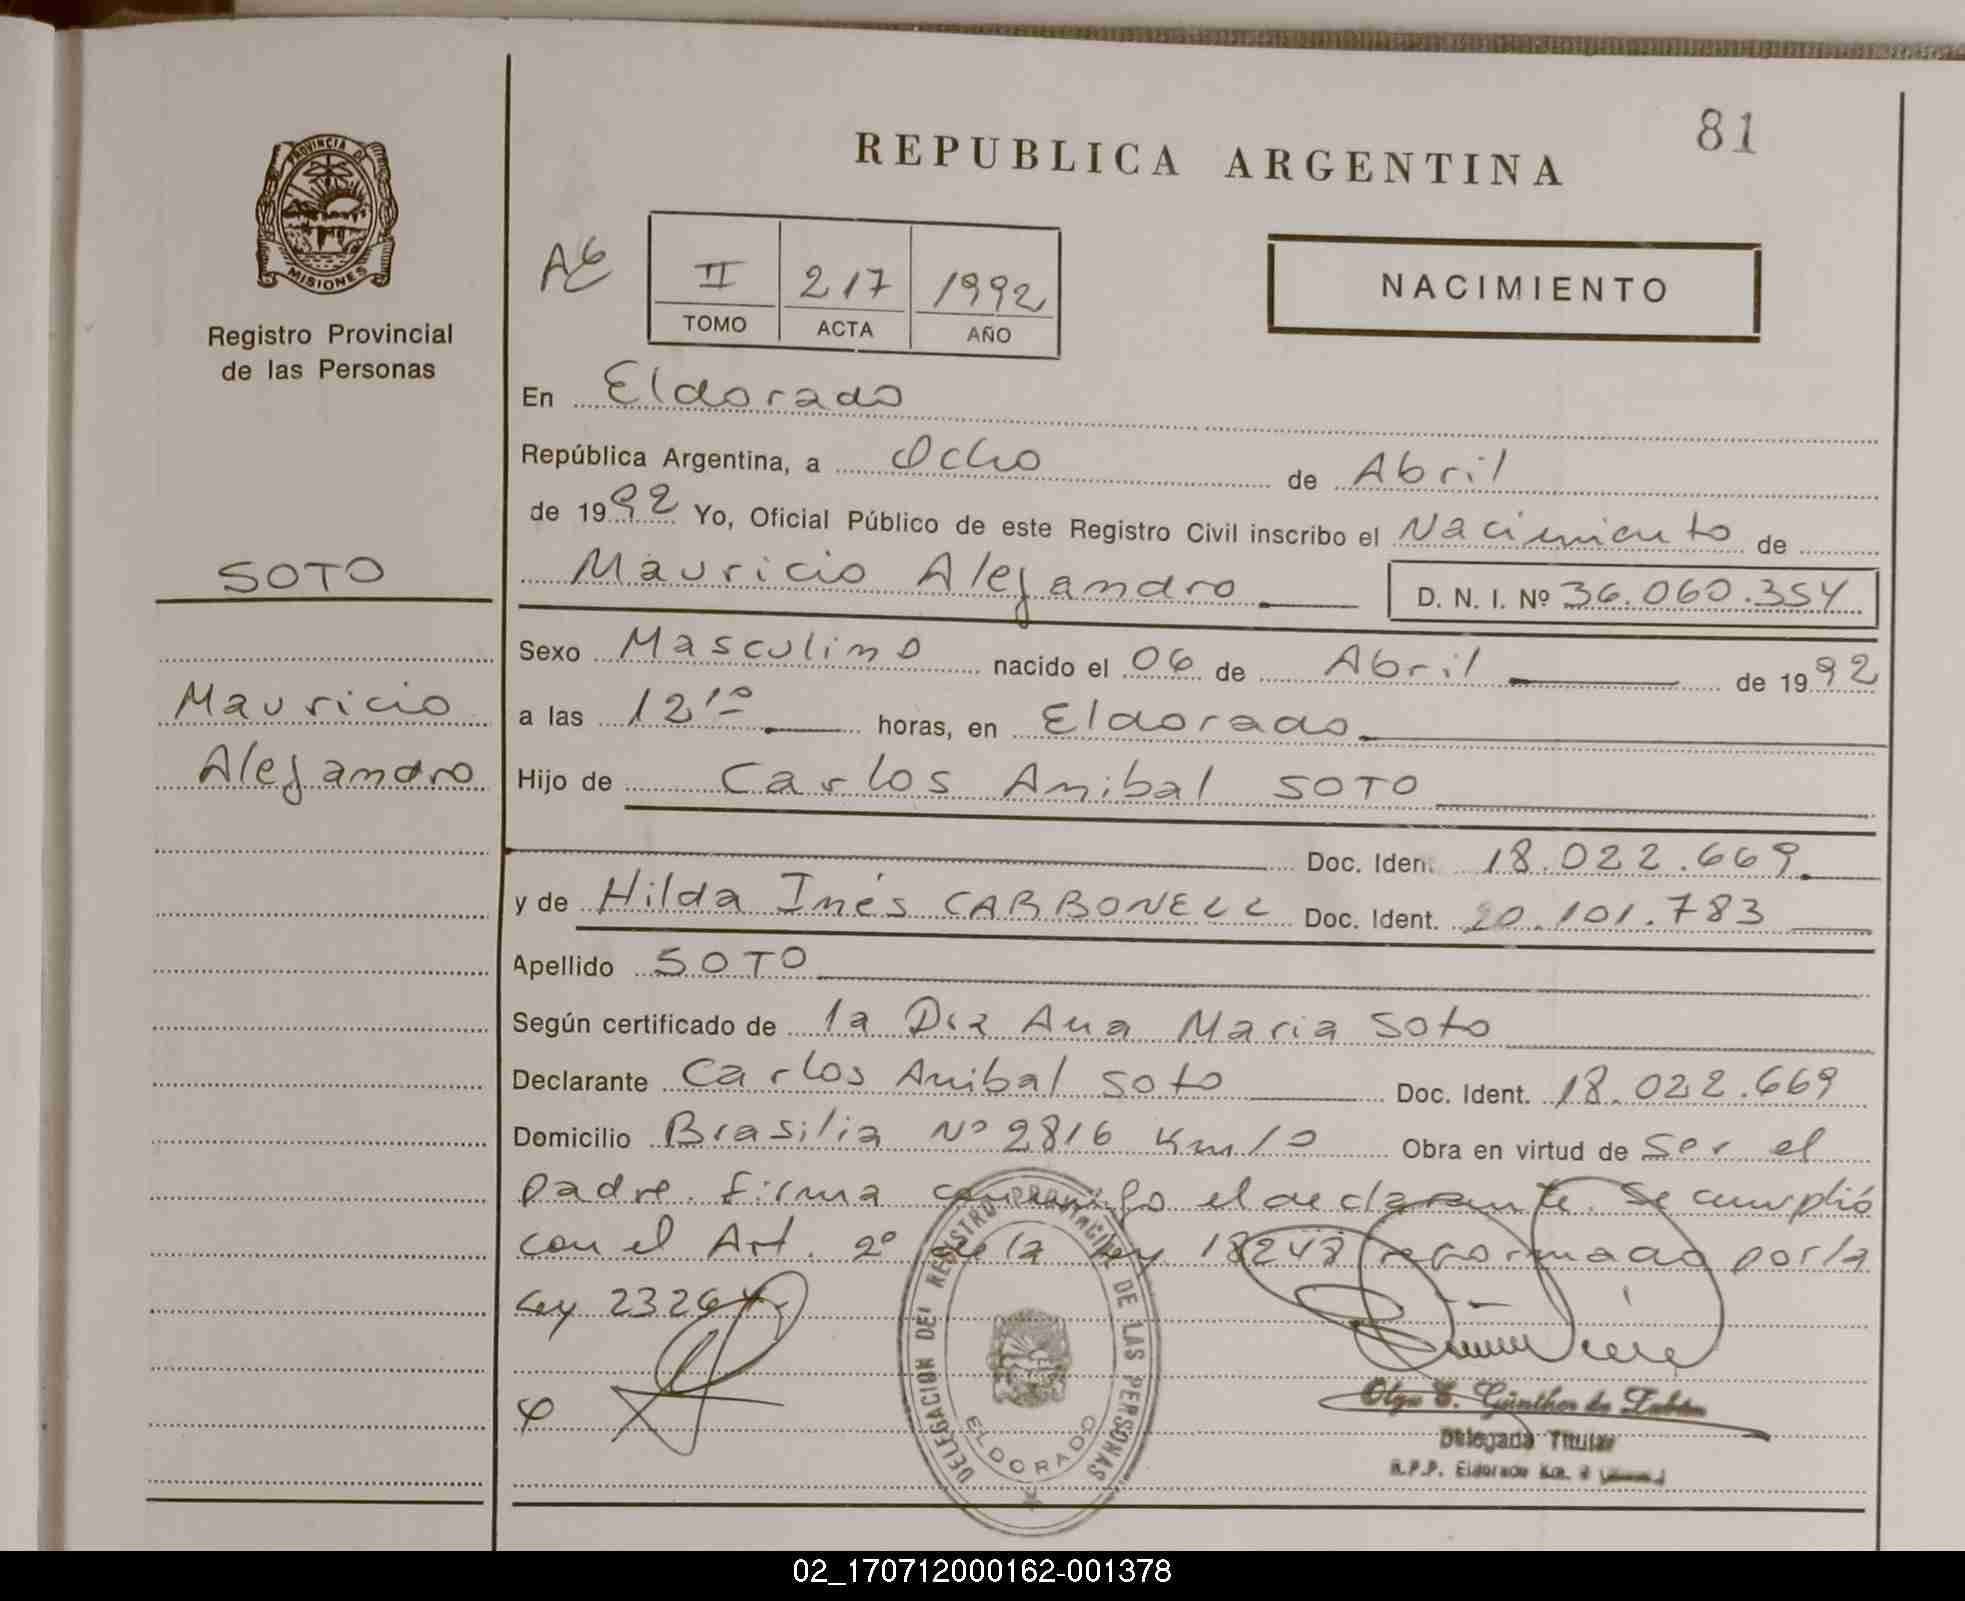 81
REPUBLICA ARGENTINA
PROVINCIA DE
MISIONES
Registro Provincial
de las Personas
II 217 1992
TOMO ACTA AÑO
NACIMIENTO
En Eldorado
República Argentina, a Ocho de Abril
de 1992 Yo, Oficial Público de este Registro Civil inscribo el Nacimiento de
SOTO
Mauricio Alejandro D. N. I. Nº 36.060.354
Sexo Masculino nacido el 06 de Abril de 1992
Mauricio
a las 12¹⁰ horas, en Eldorado
Alejandro
Hijo de Carlos Anibal SOTO
Doc. Ident. 18.022.669
y de Hilda Inés CARBONELL Doc. Ident. 20.101.783
Apellido SOTO
Según certificado de la Dra Ana Maria Soto
Declarante Carlos Anibal Soto Doc. Ident. 18.022.669
Domicilio Brasilia Nº 2816 Km 10 Obra en virtud de Ser el
padre. Firma conmigo el declarante. Se cumplió
con el Art. 2º de la Ley 18248 reformado por la
Ley 23264
DELEGACION DEL REGISTRO PROVINCIAL DE LAS PERSONAS
ELDORADO
Olga E. Günther de
Delegada Titular
R.P.P. Eldorado Km.
02_170712000162-001378